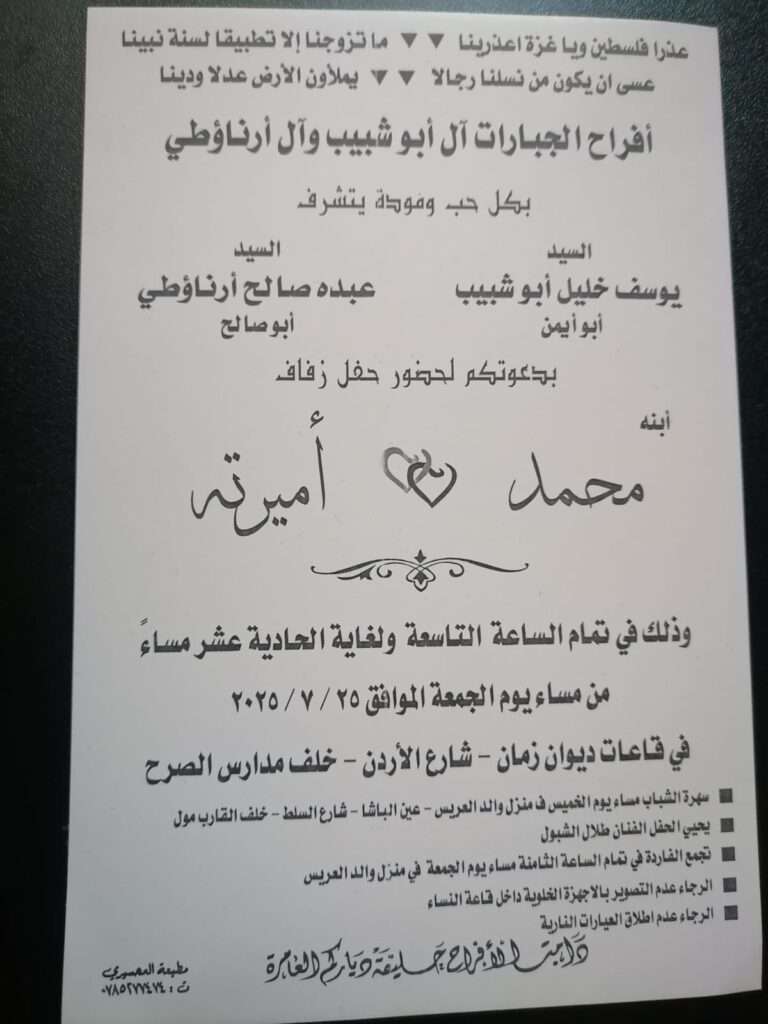 عذرا فلسطين ويا غزة اعذرينا ▼ ▼ ما تزوجنا إلا تطبيقا لسنة نبينا
عسى ان يكون من نسلنا رجالا ▼ ▼ يملأون الأرض عدلا ودينا
أفراح الجبارات آل أبو شبيب وآل أرناؤطي
بكل حب ومودة يتشرف
السيد
يوسف خليل أبو شبيب
أبو أيمن
السيد
عبده صالح أرناؤطي
أبو صالح
بدعوتكم لحضور حفل زفاف
أبنه
محمد أميرته
وذلك في تمام الساعة التاسعة ولغاية الحادية عشر مساءً
من مساء يوم الجمعة الموافق ٢٥ / ٧ / ٢٠٢٥
في قاعات ديوان زمان - شارع الأردن - خلف مدارس الصرح
■ سهرة الشباب مساء يوم الخميس ف منزل والد العريس - عين الباشا - شارع السلط - خلف القارب مول
■ يحيي الحفل الفنان طلال الشبول
■ تجمع الفاردة في تمام الساعة الثامنة مساء يوم الجمعة في منزل والد العريس
■ الرجاء عدم التصوير بالاجهزة الخلوية داخل قاعة النساء
■ الرجاء عدم اطلاق العيارات النارية
دامت الأفراح حليفة دياركم العامرة
مطبعة المصوري
ت : ٠٧٨٥٢٧٧٤٧٤